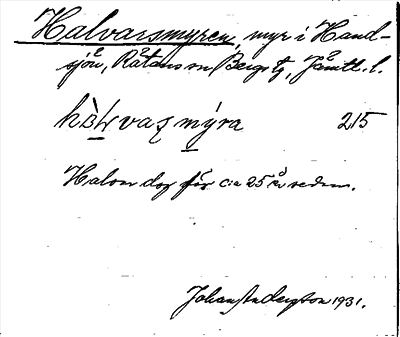 Halvarsmyren, myr i Hand-
sjön, Rätans sn Bergs tg, Jämtl. l.
215
Halvar dog för c:a 25 år sedan.
Johan Anderzton 1931.